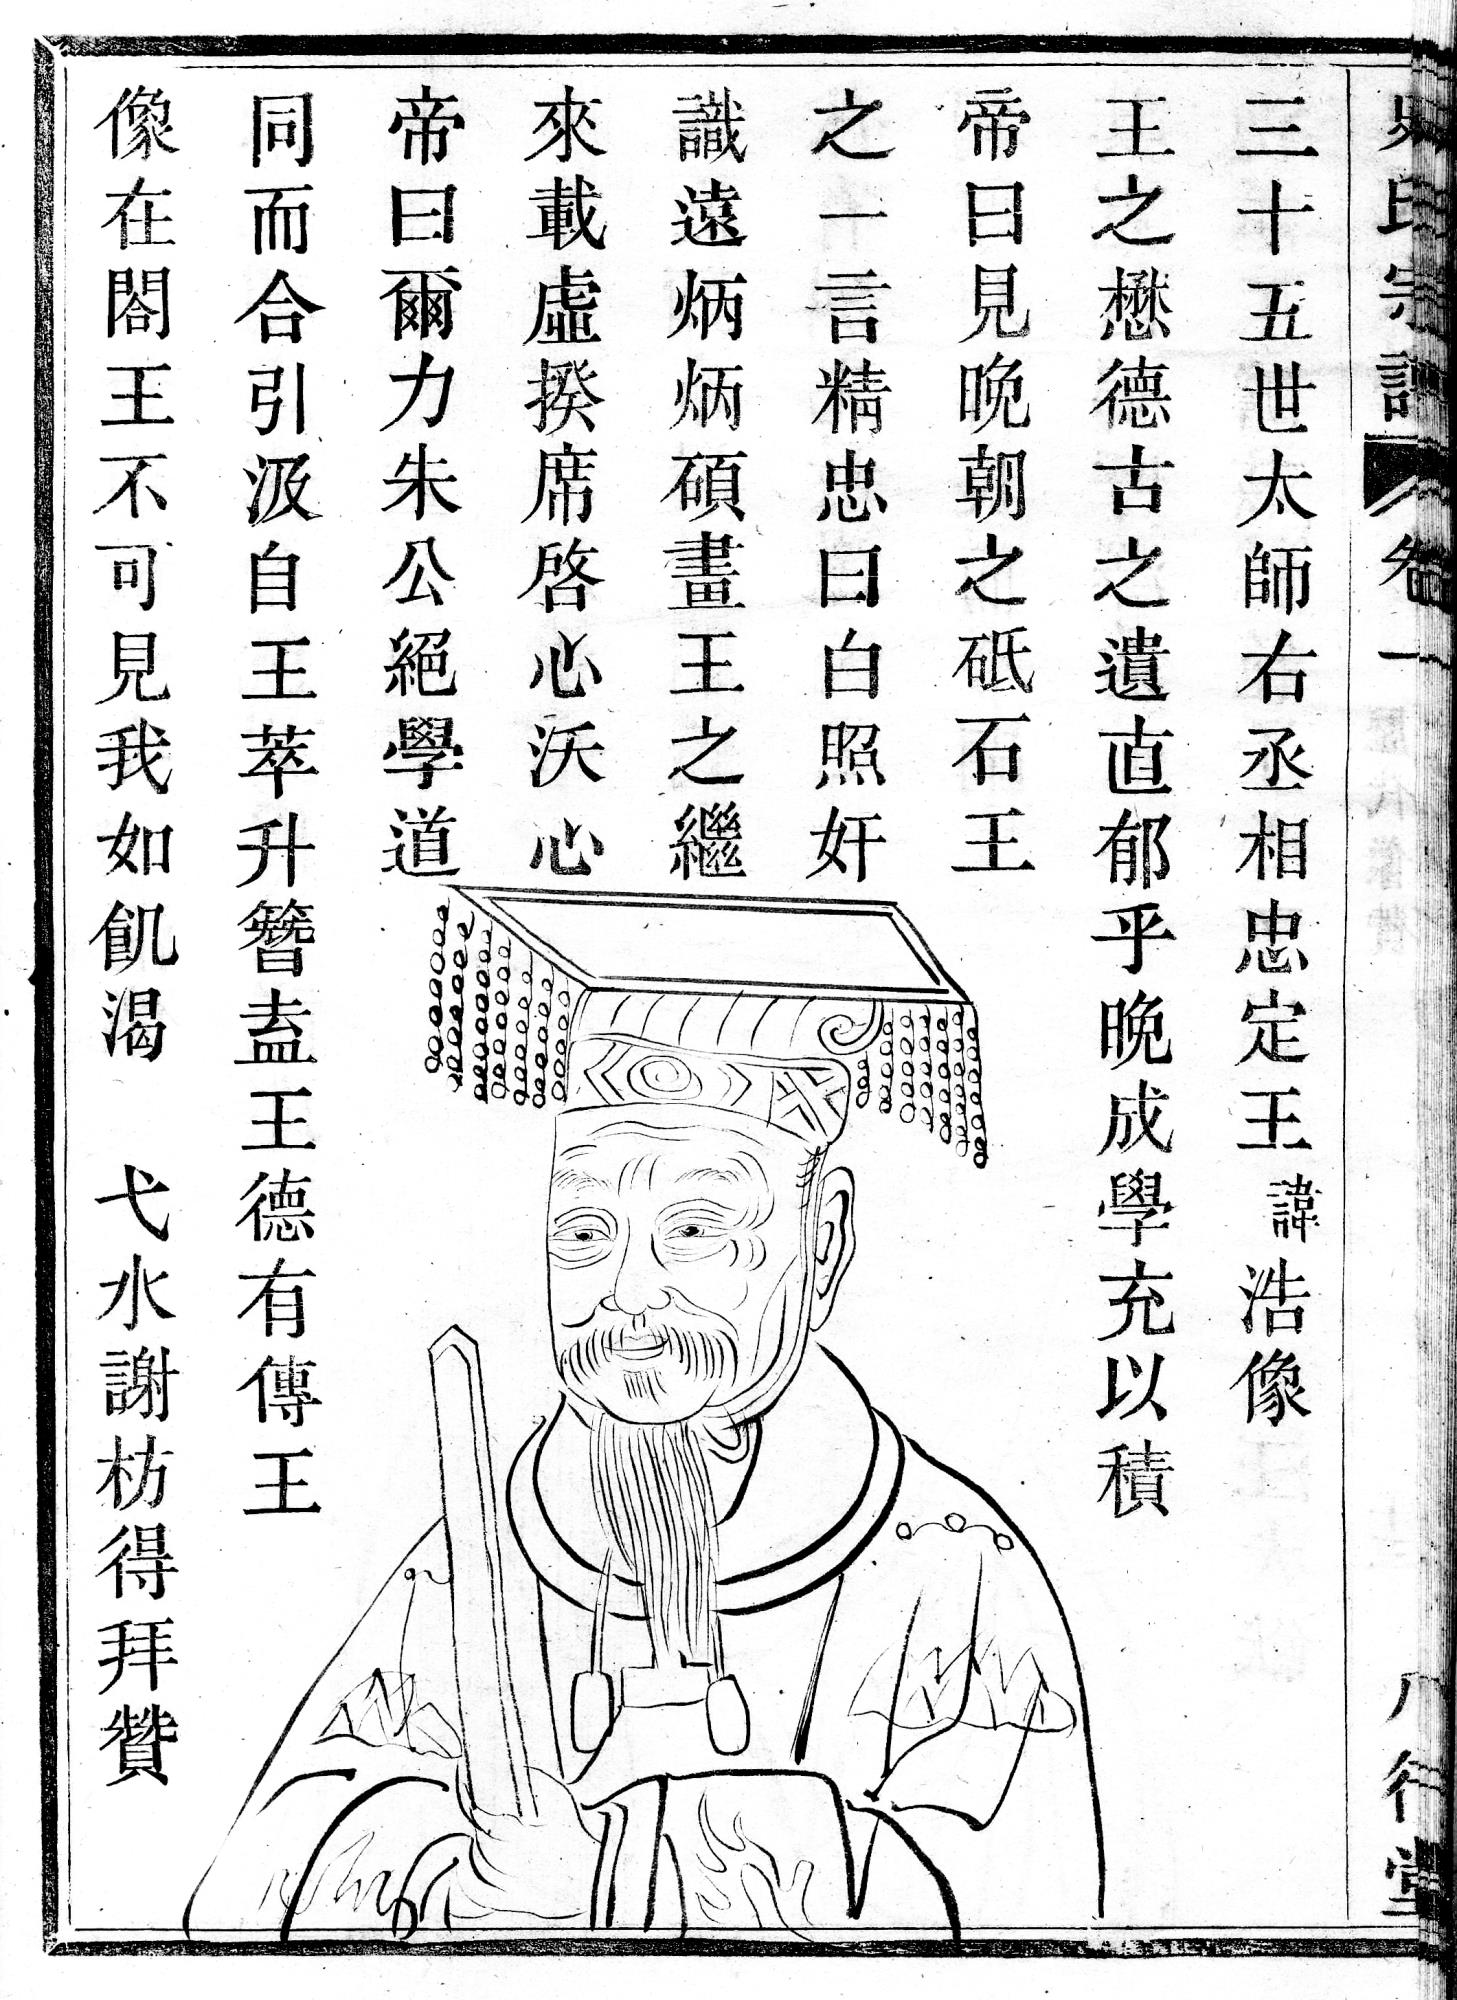 三十五世太師右丞相忠定王諱浩像
王之懋德古之遺直郁乎晚成學充以積
帝曰見晚朝之砥石王
之一言精忠曰白照奸
識遠炳炳碩畫王之繼
來載虛揆席啓心沃心
帝曰爾力朱公絕學道
同而合引汲自王萃升簪盍王德有傳王
像在閣王不可見我如飢渴 弋水謝枋得拜贊
卷一
八行堂